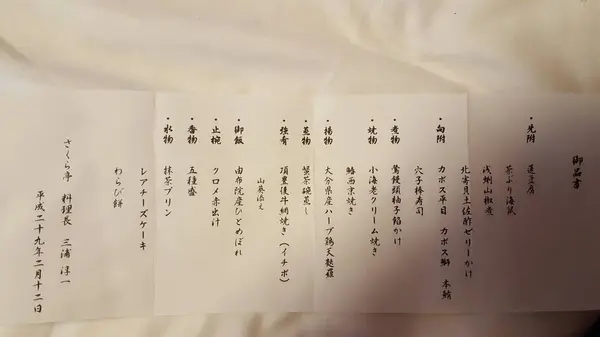 御品書
・先附
茶ぶり海鼠
山椒煮
北寄貝土佐酢ゼリーかけ
・向附 カボス平目 カボス鰤 本鮪
穴子棒寿司
・煮物 鶯饅頭柚子餡かけ
・焼物 小海老クリーム焼き
鰆西京焼き
・揚物 大分県産ハーブ鶏天麩羅
・蒸物 蟹茶碗蒸し
・強肴 頂豊後牛網焼き(イチボ)
山葵添え
・御飯 由布院産ひとめぼれ
・止椀 クロメ赤出汁
・香物 五種盛
・水物 抹茶プリン
レアチーズケーキ
わらび餅
さくら亭 料理長 三浦淳一
平成二十九年二月十二日